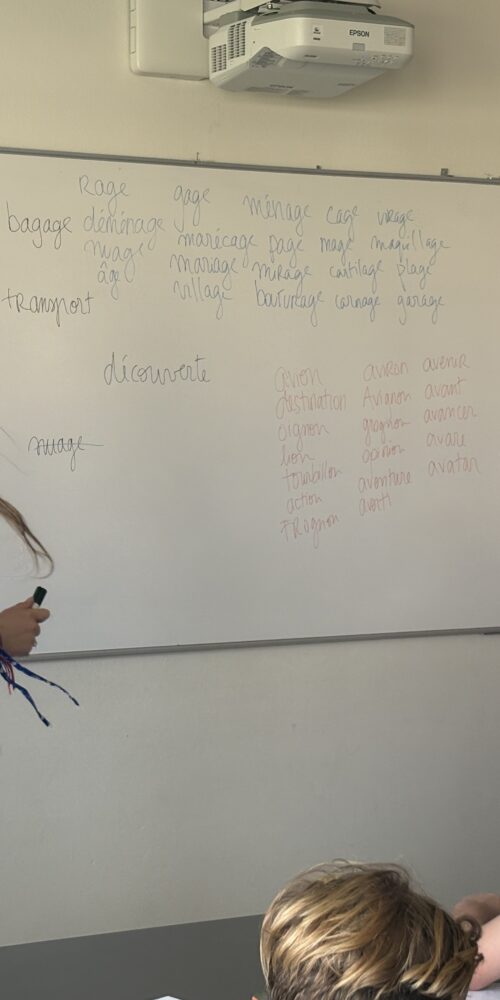 EPSON
Rage gage ménage cage virage
bagage déménage marécage page mage maquillage
nuage mariage mirage cartilage plage
âge village carnage garage
transport
découverte
nuage
avion aviron avenir
destination Avignon avant
oignon grognon avancer
lion opinion avare
tourbillon aventure avatar
action averti